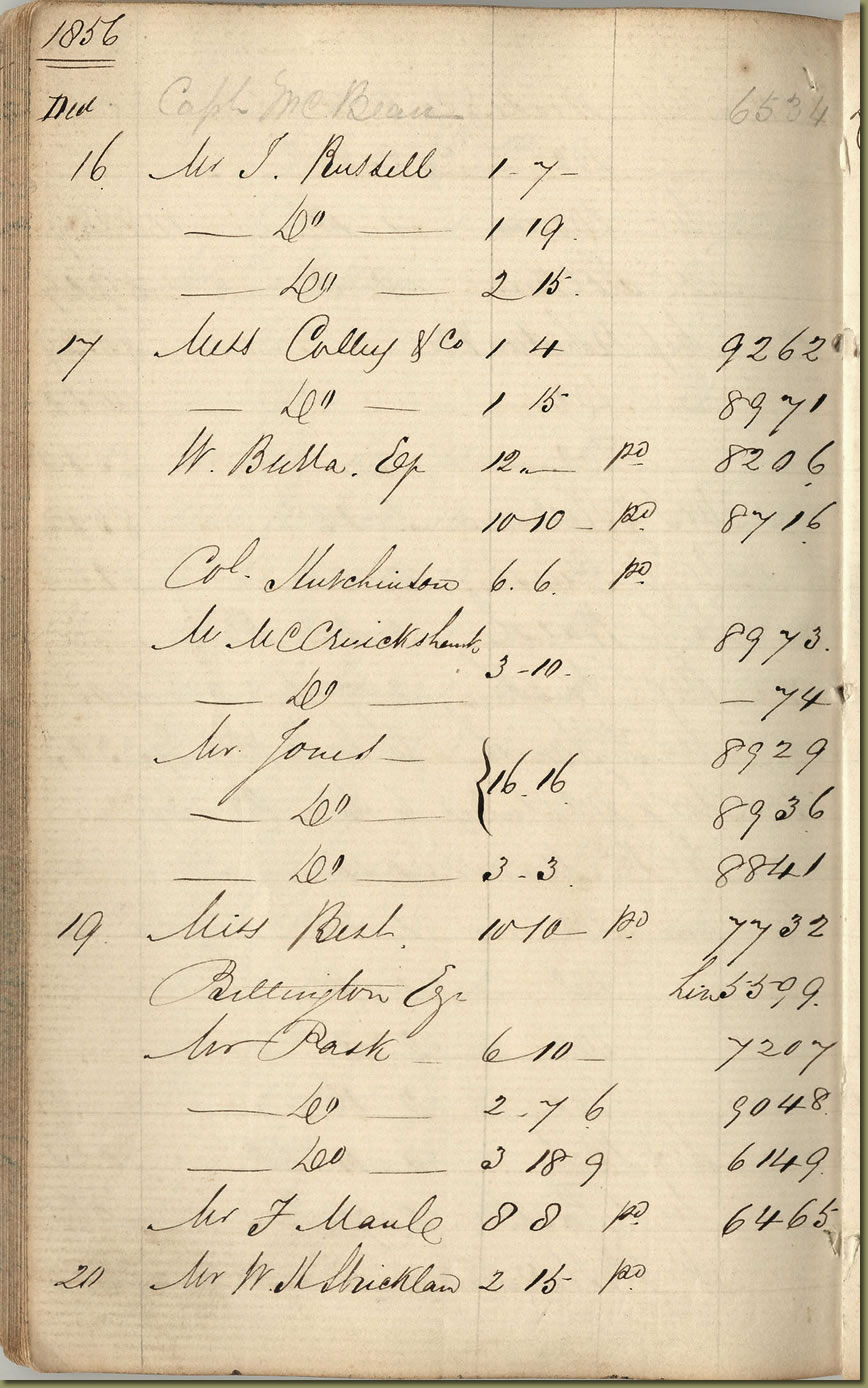 1856
Dec Capt McBean 6534
16 Mr J. Russell 1 - 7 -
— Do — 1 19.
— Do — 2 15.
17 Mess Colley & Co 1 4 9262
— Do — 1 15 8971
W. Esq 12 " — pd 8206
10 10 - pd 8716
Col. Hutchinson 6. 6. pd
M McCruickshank 8973.
3 - 10 -
— Do — — 74
Mr. Jones — 8929
{ 16. 16
— Do — 8936
— Do — 3 - 3. 8841
19. Miss Best. 10 10 — pd 7732
Billington Esq 5599.
Mr Pask — 6 10 — 7207
— Do — 2 - 7 6 9048.
— Do — 3 18 9 6149.
Mr F Maule 8 8 pd 6465
20 Mr W. H Stricklan 2 15 pd